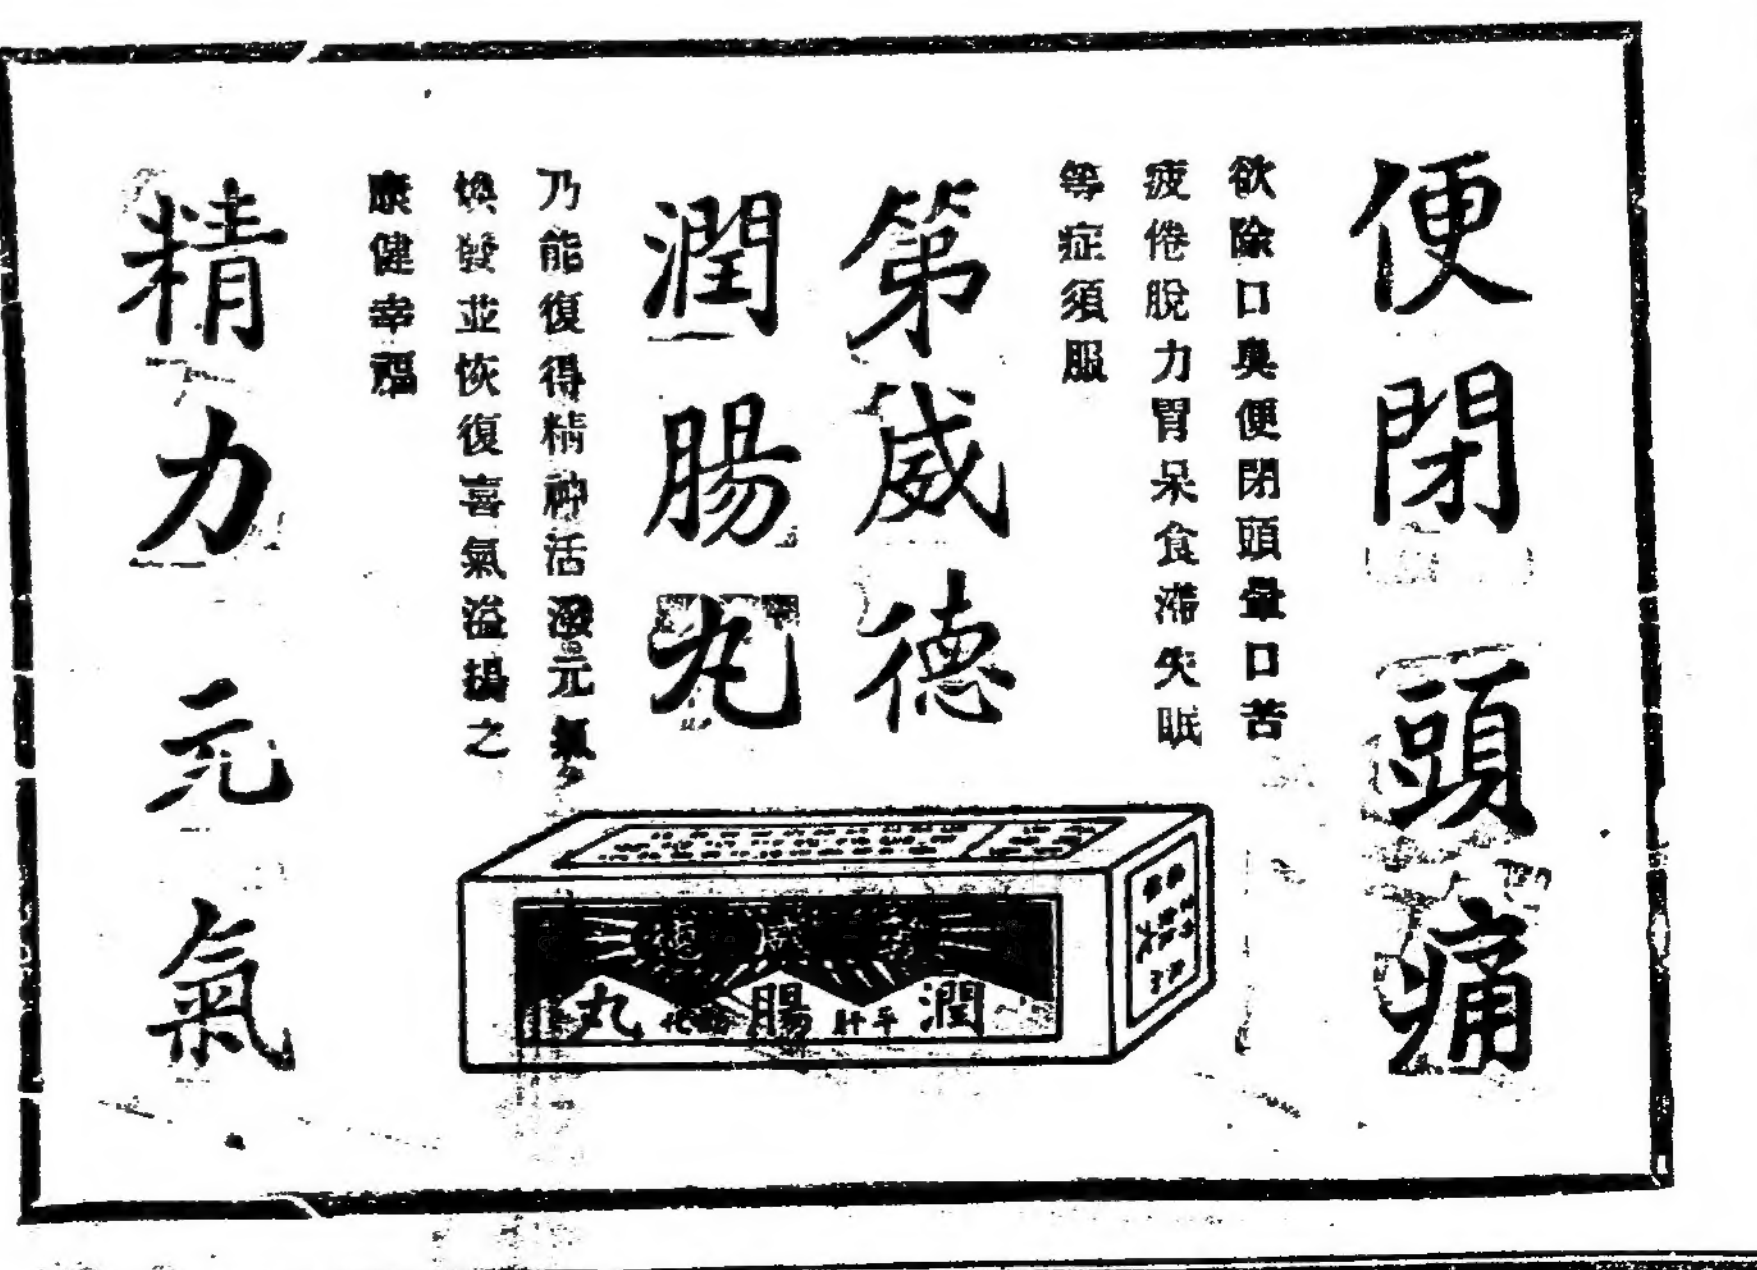 便閉頭痛
欲除口臭便閉頭暈口苦
疲倦脫力胃呆食滯失眠
等症須服
第威德
潤腸丸
乃能復得精神活潑元氣
煥發並恢復喜氣溢揚之
康健幸福
精力元氣
潤腸丸